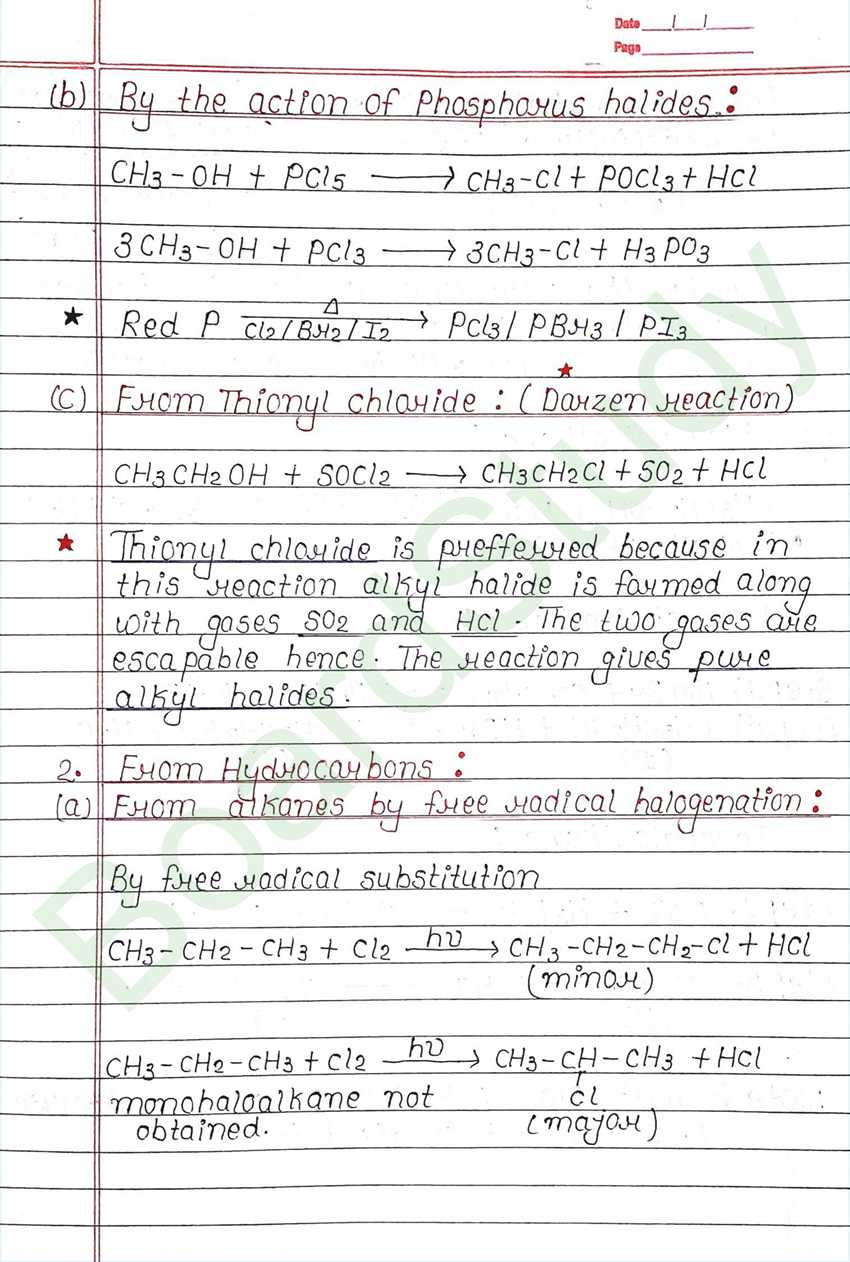 Date / /
Page
(b) By the action of Phosphorus halides.:
CH3-OH + PCl5 ⟶ CH3-Cl + POCl3 + HCl
3CH3-OH + PCl3 ⟶ 3CH3-Cl + H3PO3
★ Red P Δ Cl2/Br2/I2 ⟶ PCl3/ PBr3 / PI3
(C) From Thionyl chloride : ( ★ Darzen reaction)
CH3CH2OH + SOCl2 ⟶ CH3CH2Cl + SO2 + HCl
★ Thionyl chloride is prefferred because in
this reaction alkyl halide is formed along
with gases SO2 and HCl. The two gases are
escapable hence. The reaction gives pure
alkyl halides.
2. From Hydrocarbons :
(a) From alkanes by free radical halogenation :
By free radical substitution
CH3-CH2-CH3 + Cl2 hν ⟶ CH3-CH2-CH2-Cl + HCl
(minor)
CH3-CH2-CH3 + Cl2 hν ⟶ CH3-CH-CH3 + HCl
monohaloalkane not Cl
obtained. (major)
BoardStudy